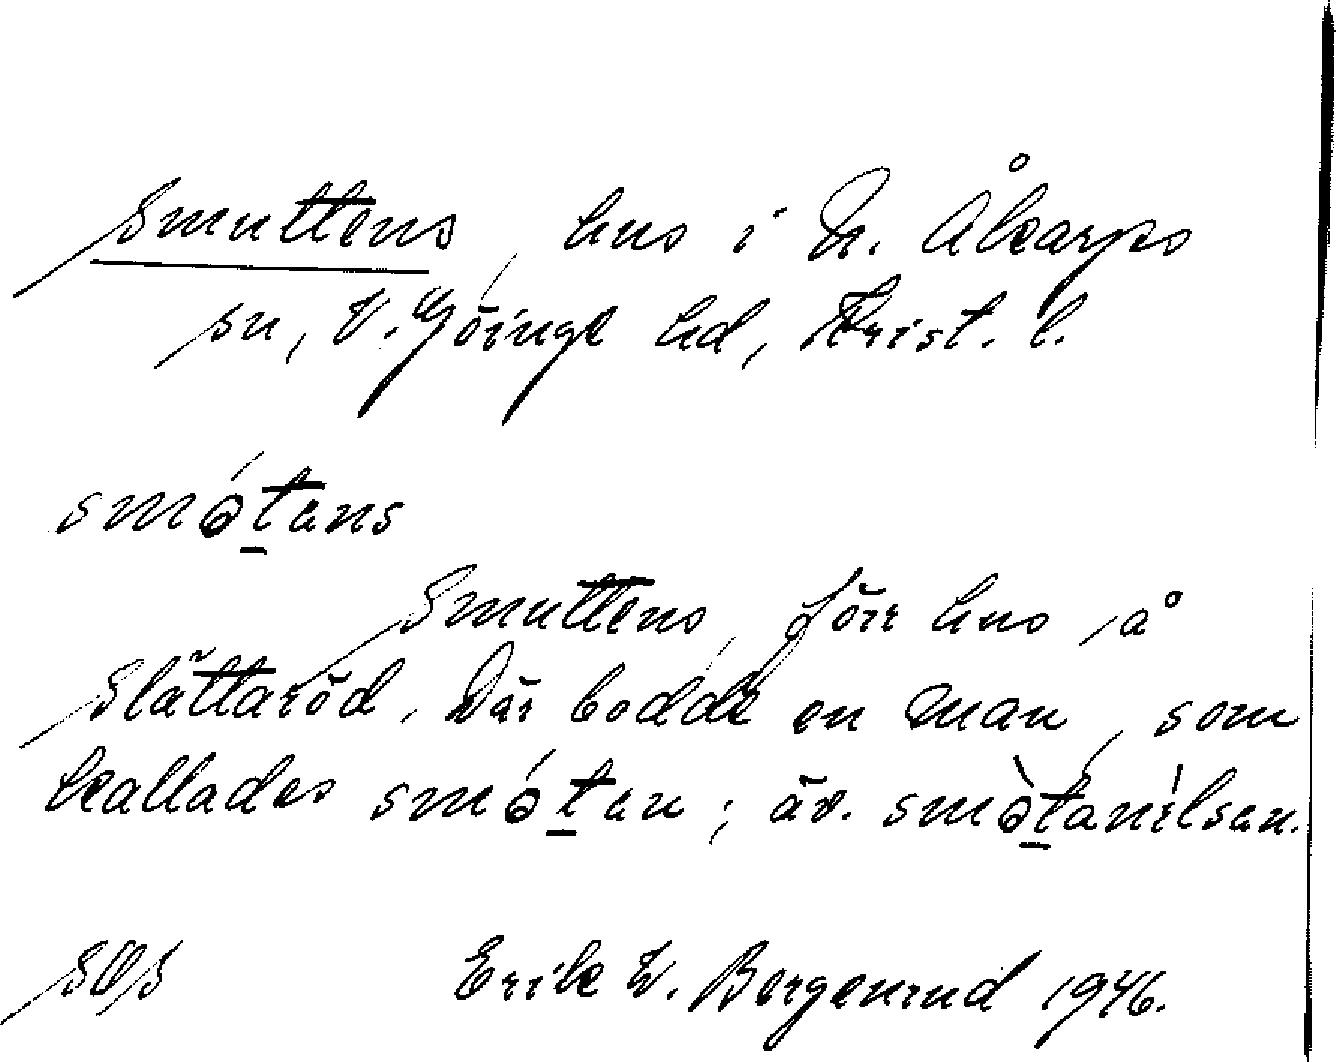 Smuttens, hus i N. Åkarps
sn, V. Göinge hd, Krist. l.
smə́tans
Smuttens, förr hus på
Slättaröd. Där bodde en man, som
kallades smə́tan; äv. smə̀tanílsan.
Erik W. Bergenrud 1946.